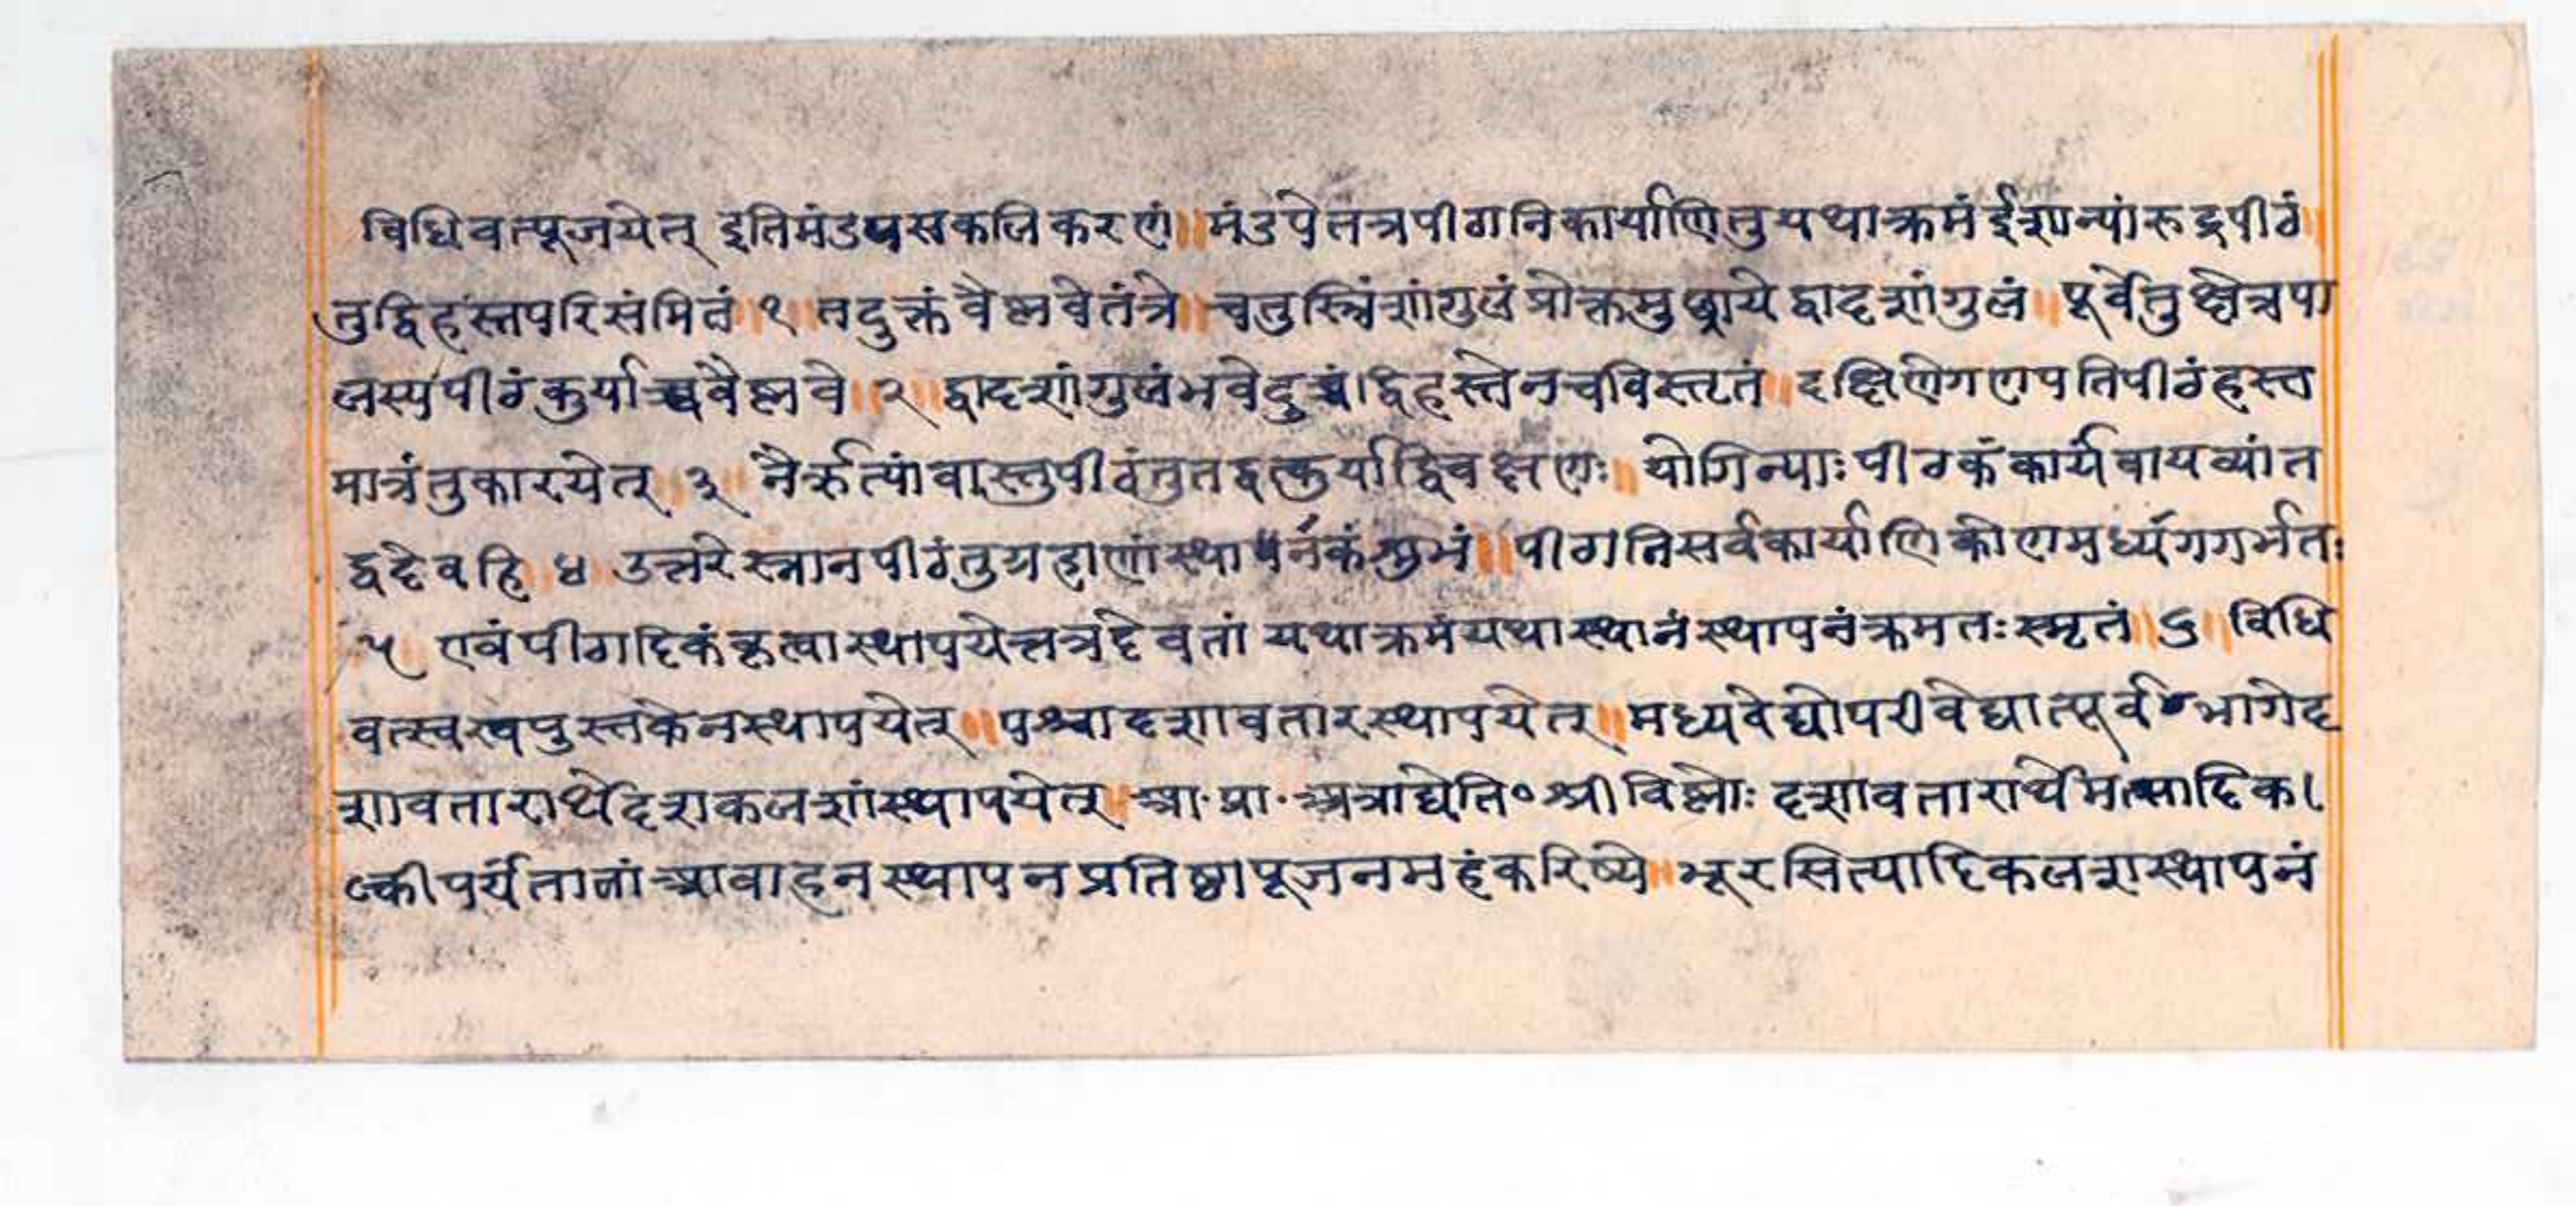 विधिवत्पूजयेत् इतिमंडपसकलिकरणं॥मंडपेतत्रपीठानिकार्याणितुयथाक्रमंईशान्यांरुद्रपीठं
तुद्विहस्तपरिसंमितं॥१॥तदुक्तंवैष्णवेतंत्रे॥चतुस्त्रिंशांगुलंप्रोक्तमुछ्रायेद्वादशांगुलं॥पूर्वेतुक्षेत्रपा
लस्यपीठंकुर्याच्चवैष्णवे॥२॥द्वादशांगुलंभवेदुच्चंद्विहस्तेनचविस्तृतं॥दक्षिणेगणपतिपीठंहस्त
मात्रंतुकारयेत् ३॥नैर्ऋत्यांवास्तुपीठंतुतद्वत्कुर्याद्विचक्षणः॥योगिन्याःपीठकंकार्यंवायव्यांत
द्वदेवहि ४ उत्तरेस्नानपीठंतुग्रहाणांस्थापनंकंशुभं॥पीठानिसर्वकार्याणिकोणमध्यंगगर्भतः
५ एवंपीठादिकंकृत्वास्थापयेत्तत्रदेवतां यथाक्रमंयथास्थानंस्थापनंक्रमतःस्मृतं॥६॥विधि
वत्स्वस्वपुस्तकेनस्थापयेत्॥पश्चादशावतारस्थापयेत्॥मध्यवेद्योपरीवेद्यात्पूर्वभागेद
शावतारार्थेदशकलशांस्थापयेत् आ॰प्रा॰अत्राद्येति॰श्रीविष्णोः दशावतारार्थेमत्सादिक।
ल्कीपर्यंतानांआवाहनस्थापनप्रतिष्ठापूजनमहंकरिष्ये॥भूरसित्यादिकलशस्थापनं